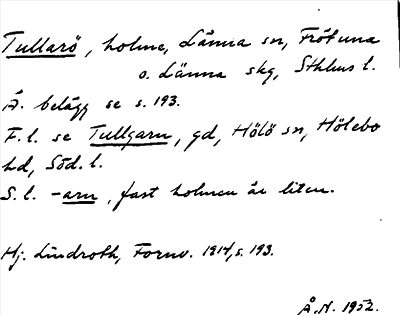 Tullarö, holme, Länna sn, Frötuna
o. Länna skg, Sthlms l.
Ä. belägg se s. 193.
F.l. se Tullgarn, gd, Hölö sn, Hölebo
hd, Söd. l.
S.l. -arn, fast holmen är liten.
Hj. Lindroth, Fornv. 1914, s. 193.
Å.N. 1952.